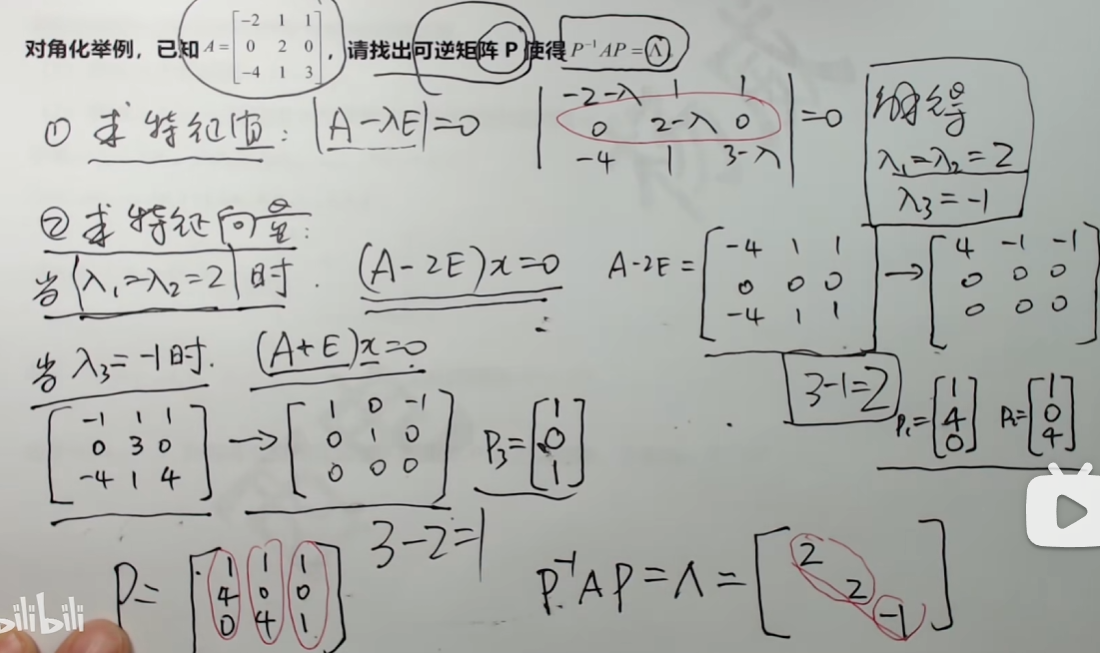 对角化举例，已知 A = [-2 1 1; 0 2 0; -4 1 3]，请找出可逆矩阵 P 使得 P⁻¹AP = Λ.
① 求特征值: |A-λE|=0 |-2-λ 1 1; 0 2-λ 0; -4 1 3-λ| =0 解得 λ₁=λ₂=2 λ₃=-1
② 求特征向量:
当 λ₁=λ₂=2 时. (A-2E)x=0 A-2E = [-4 1 1; 0 0 0; -4 1 1] → [4 -1 -1; 0 0 0; 0 0 0]
3-1=2 P₁=[1; 4; 0] P₂=[1; 0; 4]
当 λ₃=-1时. (A+E)x=0
[-1 1 1; 0 3 0; -4 1 4] → [1 0 -1; 0 1 0; 0 0 0] P₃=[1; 0; 1]
3-2=1
P= [1 1 1; 4 0 0; 0 4 1] P⁻¹AP=Λ= [2 2 -1]
bilibili